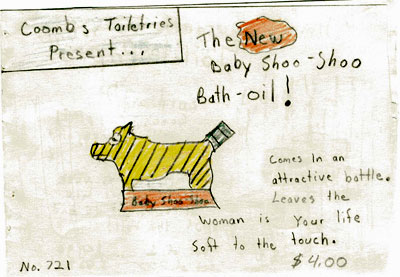 Coombs Toiletries
Present...
The New
Baby Shoo-Shoo
Bath-oil!
Baby Shoo Shoo
Comes In an
attractive bottle.
Leaves the
woman is Your life
Soft to the touch.
$4.00
No. 721